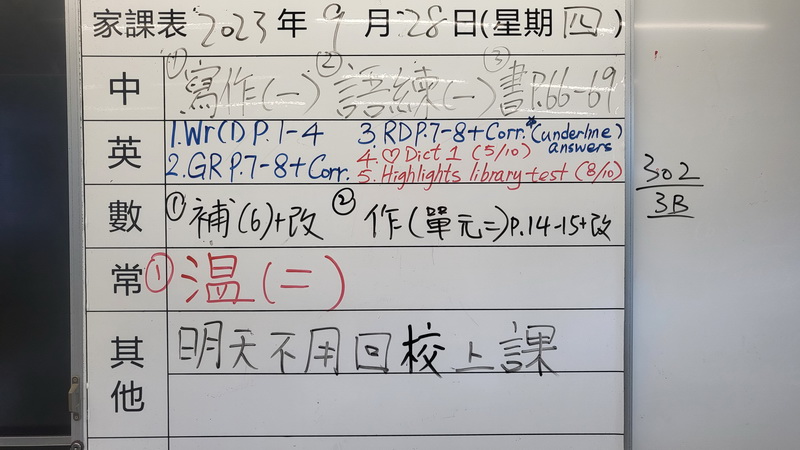 家課表 2023年9月28日(星期四)
中 ①寫作(一) ②語練(一) ③書P.66-69
英
1.Wr(1) P.1-4
2.GR P.7-8+Corr.
3.RD P.7-8+Corr.*(underline answers)
4.♡Dict 1 (5/10)
5.Highlights library test (8/10)
數 ①補(6)+改 ②作(單元二)P.14-15+改
常 ①温(二)
其他 明天不用回校上課
302
3B